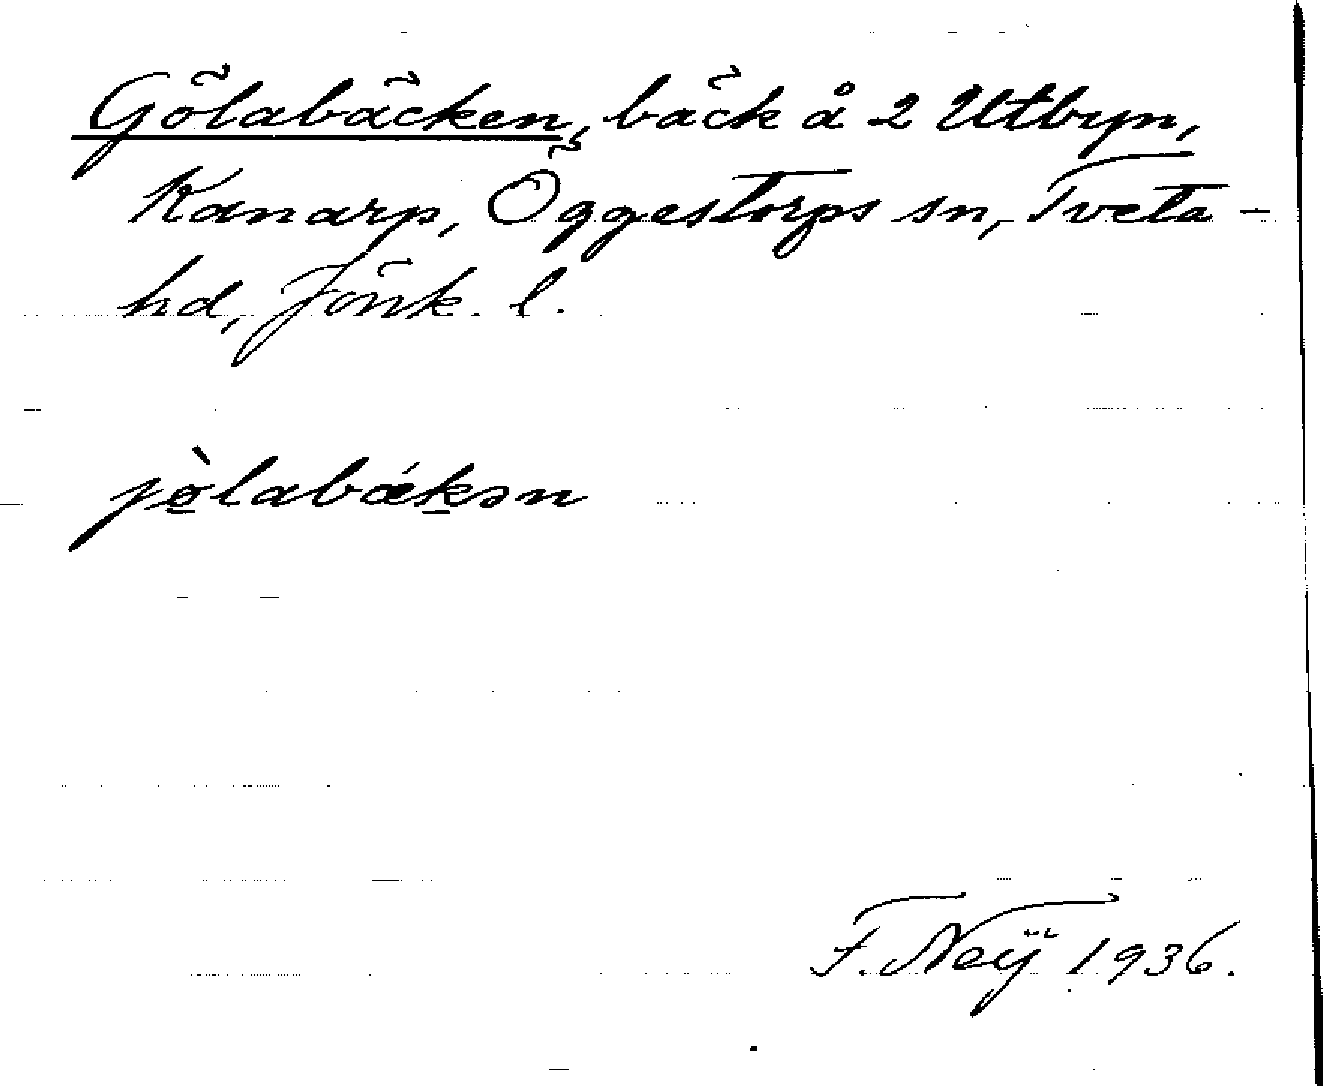 Gölabäcken, bäck å 2 Utbyn,
Kanarp, Öggestorps sn, Tveta-
hd, Jönk. l.
jø̀labækən
F. Neij 1936.